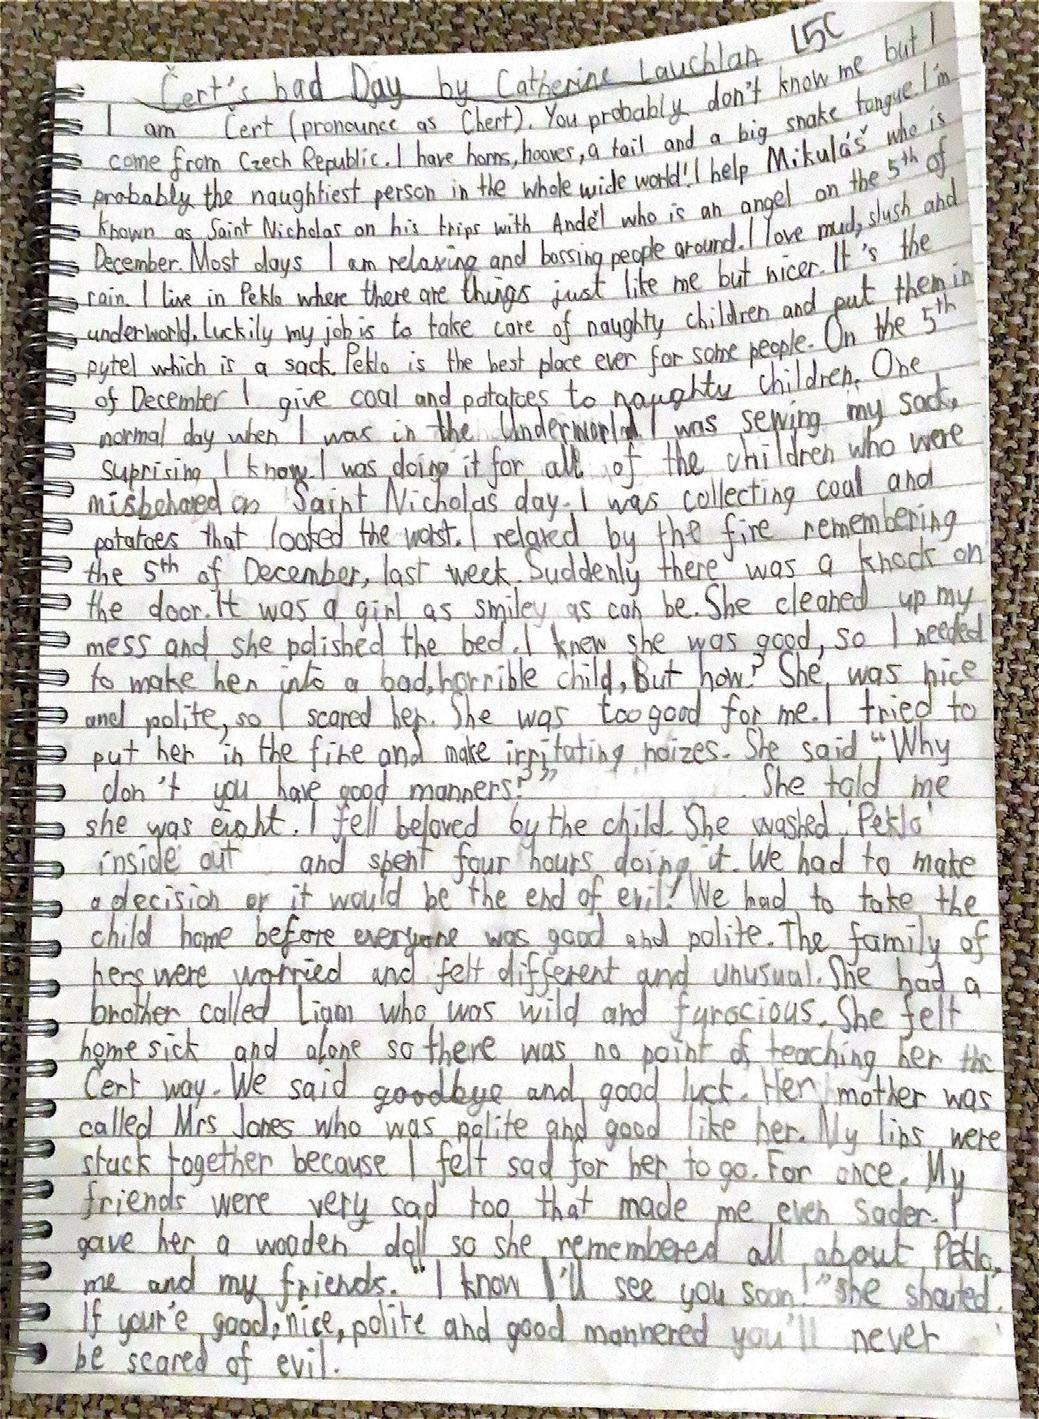 Čert's bad Day by Catherine Lauchlan L5C
I am Čert (pronounce as Chert). You probably don't know me but I
come from Czech Republic. I have horns, hooves, a tail and a big snake tongue. I'm
probably the naughtiest person in the whole wide world! I help Mikuláš who is
known as Saint Nicholas on his trips with Anděl who is an angel on the 5th of
December. Most days I am relaxing and bossing people around. I love mud, slush and
rain. I live in Peklo where there are things just like me but nicer. It's the
underworld. luckily my job is to take care of naughty children and put them in
pytel which is a sack. Peklo is the best place ever for some people. On the 5th
of December I give coal and potatoes to naughty children. One
normal day when I was in the Underworld I was sewing my sack,
suprising I know. I was doing it for all of the children who were
misbehaved on Saint Nicholas day. I was collecting coal and
potatoes that looked the worst. I relaxed by the fire remembering
the 5th of December, last week. Suddenly there was a knock on
the door. It was a girl as smiley as can be. She cleaned up my
mess and she polished the bed. I knew she was good, so I needed
to make her into a bad, horrible child, But how? She was nice
and polite, so I scared her. She was too good for me. I tried to
put her in the fire and make irritating noizes. She said "Why
don't you have good manners?" She told me
she was eight. I fell beloved by the child. She washed 'Peklo'
inside out and spent four hours doing it. We had to make
a decision or it would be the end of evil! We had to take the
child home before everyone was good and polite. The family of
hers were worried and felt different and unusual. She had a
brother called Liam who was wild and fyrocious. She felt
home sick and alone so there was no point of teaching her the
Čert way. We said goodbye and good luck. Her mother was
called Mrs Jones who was polite and good like her. My lips were
stuck together because I felt sad for her to go. For once. My
friends were very sad too that made me even sader. I
gave her a wooden doll so she remembered all about Peklo,
me and my friends. "I know I'll see you soon!" she shouted.
If your'e good, nice, polite and good mannered you'll never
be scared of evil.